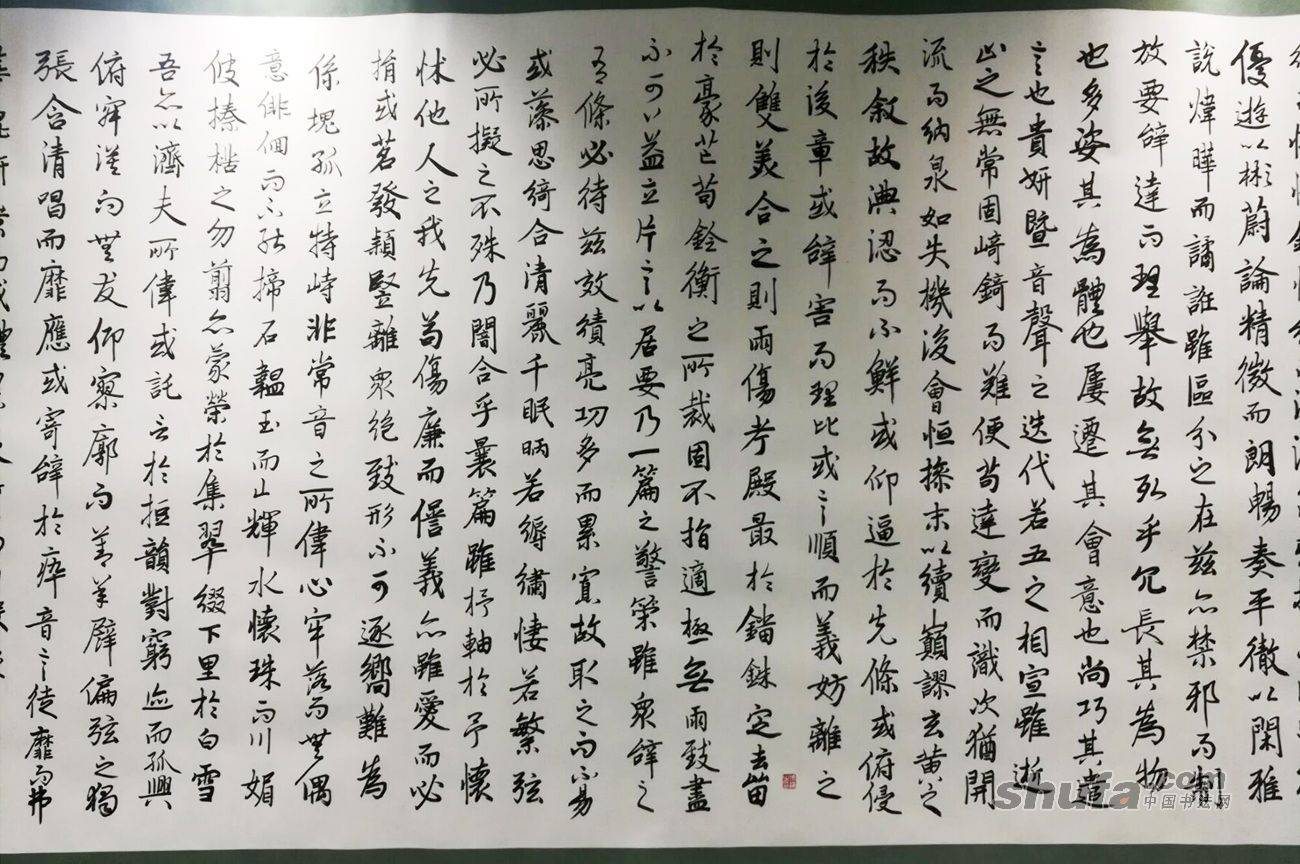 優遊以彬蔚論精微而朗暢奏平徹以閑雅
說煒曄而譎誑雖區分之在茲亦禁邪而制
放要辭達而理舉故無取乎冗長其為物
也多姿其為體也屢遷其會意也尚巧其遣
言也貴妍暨音聲之迭代若五之相宣雖逝
止之無常固崎錡而難便苟達變而識次猶開
流而納泉如失機後會恒操末以續巔謬玄黃之
秩敘故淟認而不鮮或仰逼於先條或俯侵
於後章或辭害而理比或言順而義妨離之
則雙美合之則兩傷考殿最於錙銖定去留
於豪芒苟銓衡之所裁固不指適極無兩致盡
不可以益立片言以居要乃一篇之警策雖眾辭之
有條必待茲效績亮功多而累寡故取之而不易
或藻思綺合清麗千眠炳若縟繡悽若繁弦
必所擬之不殊乃闇合乎曩篇雖杼軸於予懷
怵他人之我先苟傷廉而愆義亦雖愛而必
捐或苕發穎豎離眾絕致形不可逐響難為
係塊孤立特峙非常音之所偉心牢落而無偶
意徘徊而不能揥石韞玉而山輝水懷珠而川媚
彼榛楛之勿翦亦蒙榮於集翠綴下里於白雪
吾亦以濟夫所偉或託言於短韻對窮迹而孤興
俯寂漠而無友仰寥廓而莫承譬偏弦之獨
張含清唱而靡應或寄辭於瘁音言徒靡而弗
shufa.com
中国书法网